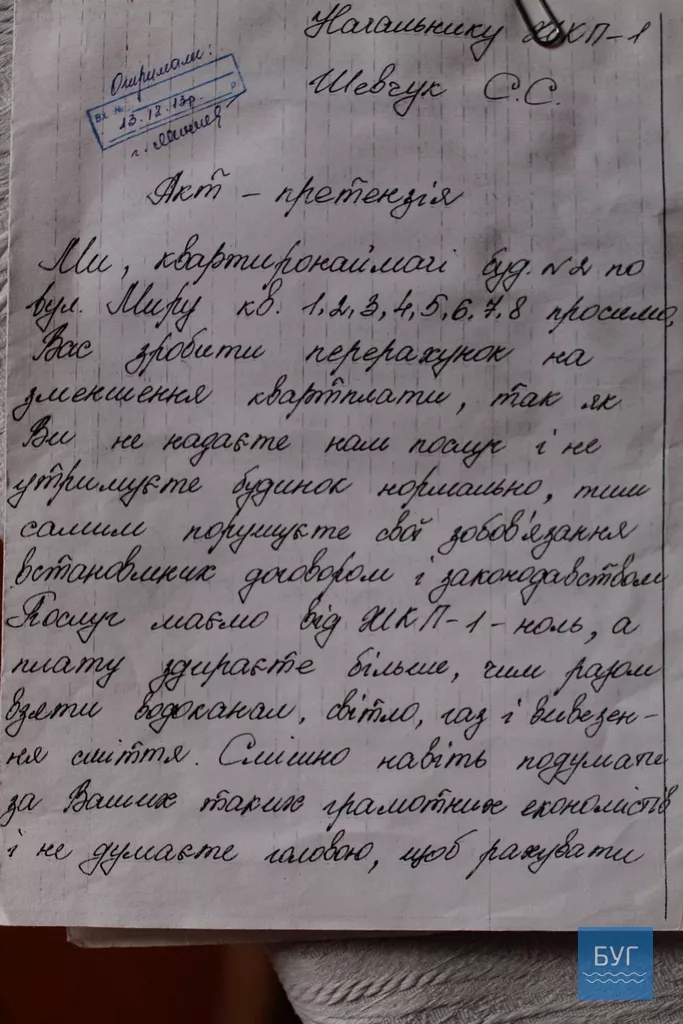 Начальнику ЖКП-1
Шевчук С.С.
Отримали:
Вх. №
13.12.13р.
Акт - претензія
Ми, квартиронаймачі буд. №2 по
вул. Миру кв. 1,2,3,4,5,6,7,8 просимо,
Вас зробити перерахунок на
зменшення квартплати, так як
Ви не надаєте нам послуг і не
утримуєте будинок нормально, тим
самим порушуєте свої зобов'язання
встановлених договором і законодавством
Послуг маємо від ЖКП-1-ноль, а
плату здираєте більше, чим разом
взяти водоканал, світло, газ і вивезен-
ня сміття. Смішно навіть подумати
за Ваших таких грамотних економістів
і не думаєте головою, щоб рахувати
БУГ